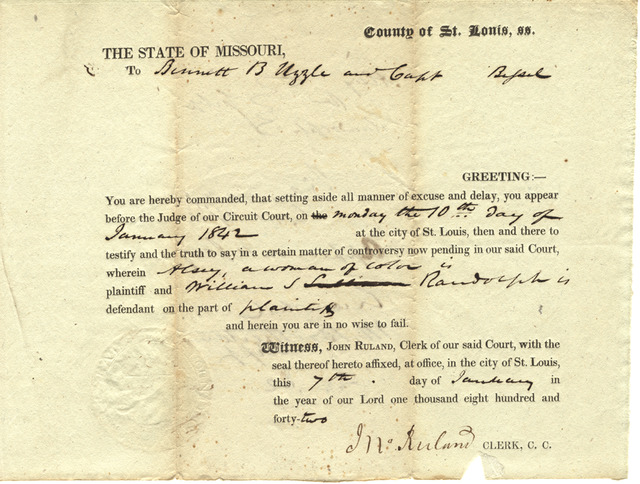 County of St. Louis, ss.
THE STATE OF MISSOURI,
To Bennett B Uzzle and Capt Bissel
GREETING:—
You are hereby commanded, that setting aside all manner of excuse and delay, you appear
before the Judge of our Circuit Court, on the monday the 10th day of
January 1842 at the city of St. Louis, then and there to
testify and the truth to say in a certain matter of controversy now pending in our said Court,
wherein Alsey, a woman of color is
plaintiff and William S Randolph is
defendant on the part of plaintiff
and herein you are in no wise to fail.
Witness, JOHN RULAND, Clerk of our said Court, with the
seal thereof hereto affixed, at office, in the city of St. Louis,
this 7th. day of January in
the year of our Lord one thousand eight hundred and
forty-two
Jno Ruland CLERK, C. C.